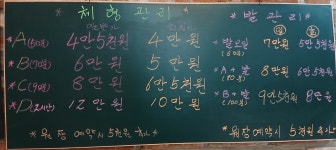 * 체형관리
* 발관리
*A(50분) 4만5천원 4만원
*B(70분) 6만원 5만원
*C(90분) 8만원 6만5천원
*D(2시간) 12만원 10만원
* 발오일 (60분) 7만원 5만5천원
* A+발 8만원 6만5천원
* B+발 (100분) 9만5천원 8만원
*원장 예약시 5천원 추가
*원장예약시 5천원 추가